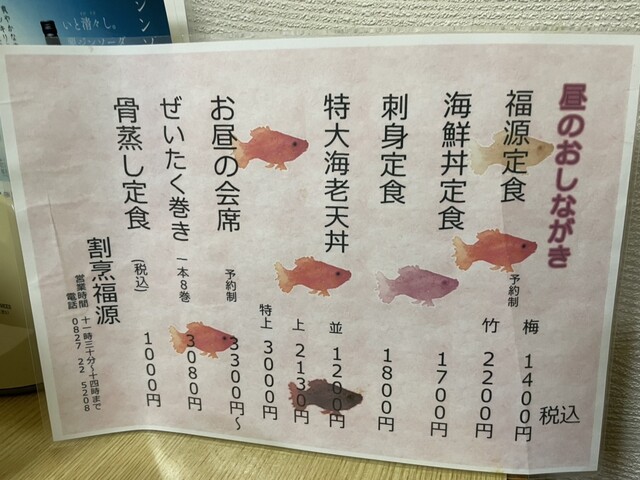 昼のおしながき
税込
福源定食 予約制 梅 1400円
竹 2200円
海鮮丼定食 1700円
刺身定食 1800円
特大海老天丼 並 1200円
上 2130円
特上 3000円
お昼の会席 予約制 3300円～
ぜいたく巻き 一本8巻 3080円
骨蒸し定食 (税込) 1000円
割烹福源
営業時間 十一時三十分～十四時まで
電話 0827 22 5208
いと清々し。